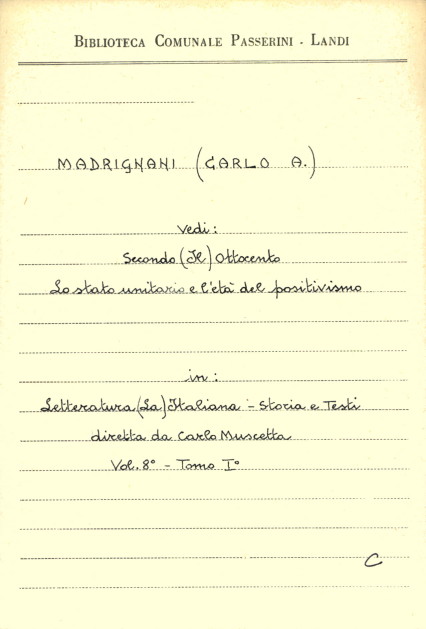 BIBLIOTECA COMUNALE PASSERINI - LANDI
MADRIGNANI (CARLO A.)
Vedi:
Secondo (Il) Ottocento
Lo stato unitario e l'età del positivismo
in:
Letteratura (La) Italiana - Storia e Testi
diretta da Carlo Muscetta
Vol. 8° - Tomo I°
C